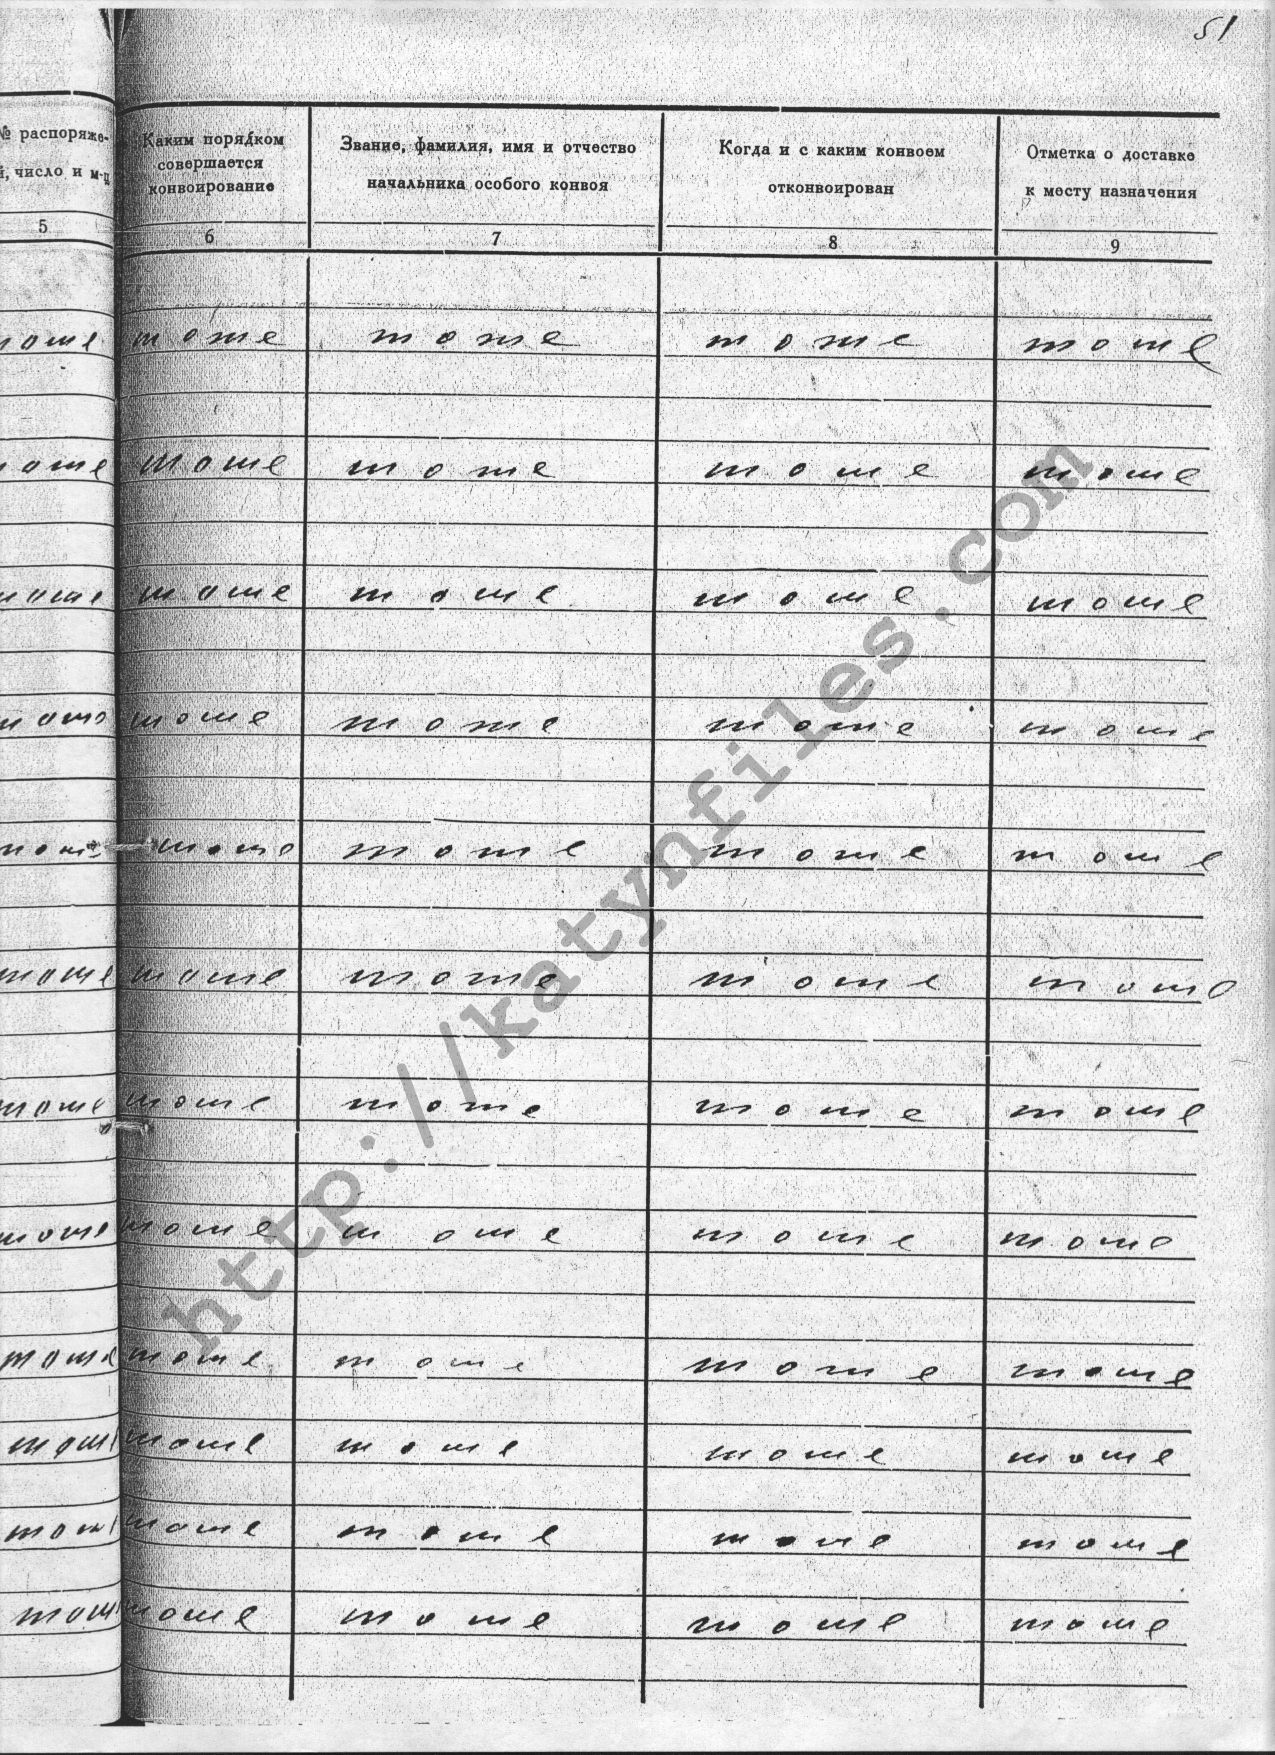 51
№ распоряже-
й, число и м-ц
Каким порядком
совершается
конвоирование
Звание, фамилия, имя и отчество
начальника особого конвоя
Когда и с каким конвоем
отконвоирован
Отметка о доставке
к месту назначения
5 6 7 8 9
тоже тоже тоже тоже тоже
тоже тоже тоже тоже тоже
тоже тоже тоже тоже тоже
тоже тоже тоже тоже тоже
тоже тоже тоже тоже тоже
тоже тоже тоже тоже тоже
тоже тоже тоже тоже тоже
тоже тоже тоже тоже тоже
тоже тоже тоже тоже тоже
тоже тоже тоже тоже тоже
тоже тоже тоже тоже тоже
тоже тоже тоже тоже тоже
http://katynfiles.com